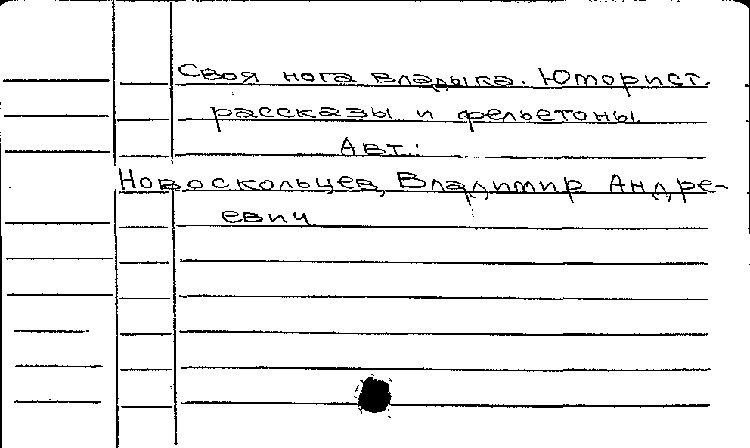 Своя нога владыка. Юморист.
рассказы и фельетоны.
Авт.:
Новоскольцев, Владимир Андре-
евич